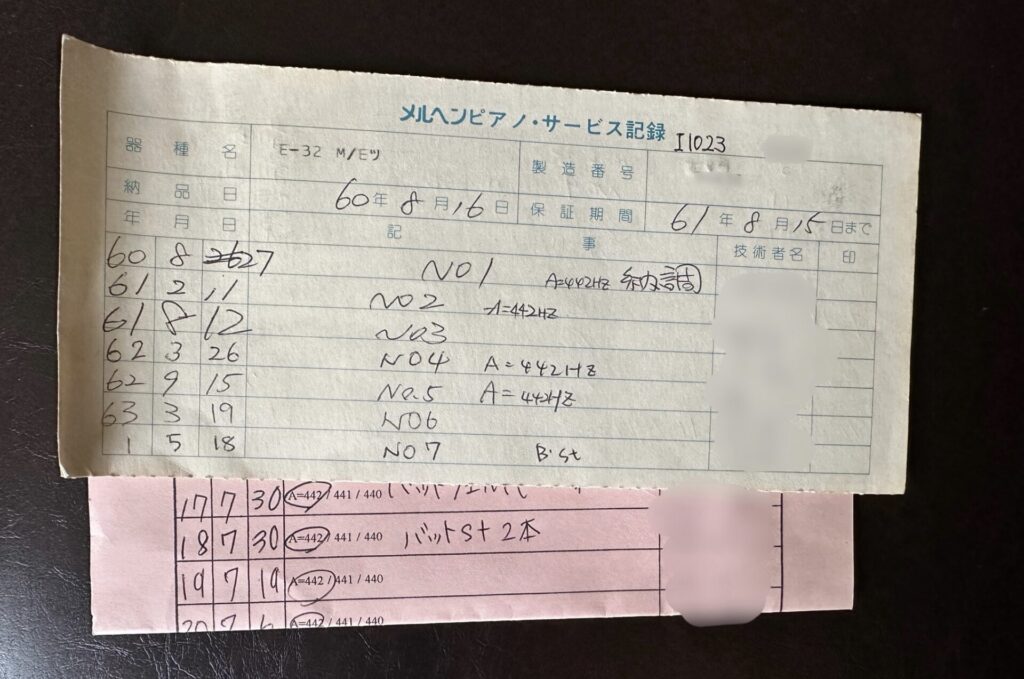 メルヘンピアノ・サービス記録 I1023
器種名 E-32 M/Eツ 製造番号
納品日 60年8月16日 保証期間 61年8月15日まで
年月日 記事 技術者名 印
60 8 27 NO1 A=442HZ 納調
61 2 11 NO2 A=442HZ
61 8 12 NO3
62 3 26 NO4 A=442HZ
62 9 15 NO.5 A=442HZ
63 3 19 NO6
1 5 18 NO7 B.st
17 7 30 A=442 / 441 / 440
18 7 30 A=442 / 441 / 440 バットSt 2本
19 7 19 A=442 / 441 / 440
20 7 6 A=442 / 441 / 440